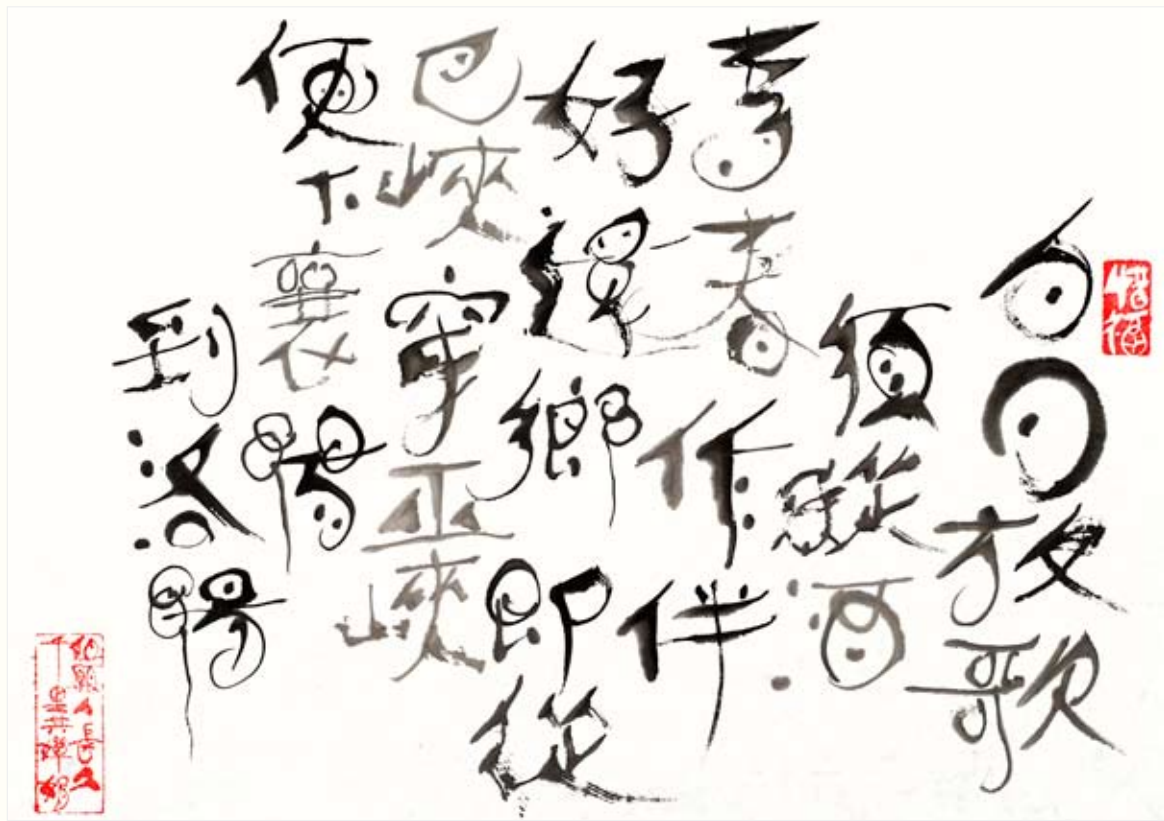 白日放歌
須縱酒
青春作伴
好還鄉即從
巴峽穿巫峽
便下襄陽
到洛陽
惜福
但願人長久
千里共嬋娟